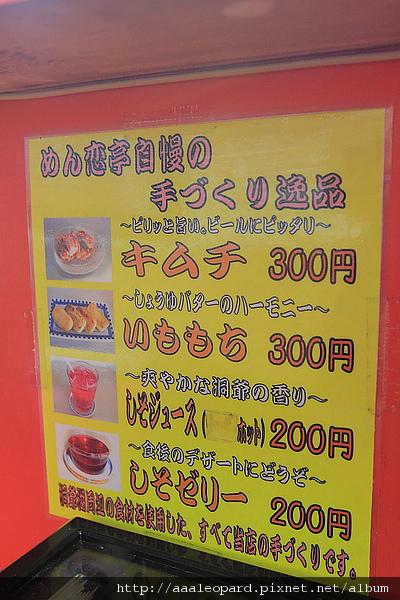 めん恋亭自慢の
手づくり逸品
～ピリッと旨い。ビールにピッタリ～
キムチ 300円
～しょうゆバターのハーモニー～
いももち 300円
～爽やかな洞爺の香り～
しそジュース( ホット) 200円
～食後のデザートにどうぞ～
しそゼリー 200円
洞爺湖周辺の食材を使用した、すべて当店の手づくりです。
http://aaaleopard.pixnet.net/album